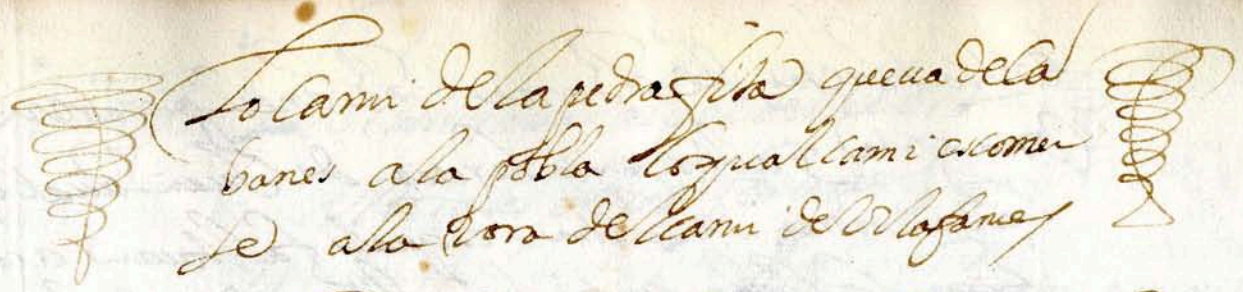 Lo cami de la pedra fita que va de Ca
banes a la pobla lo qual cami comen
se a la vora del cami de Vilafames